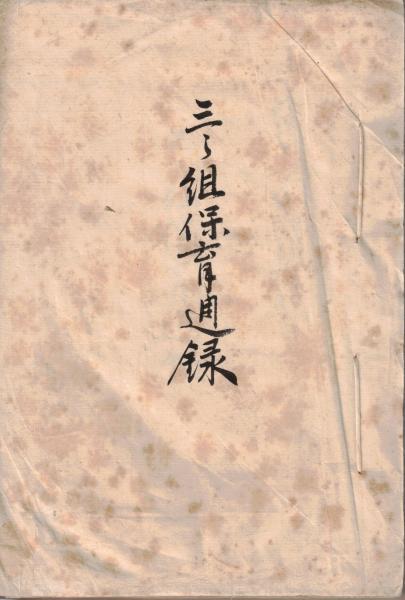 三々組保育週録